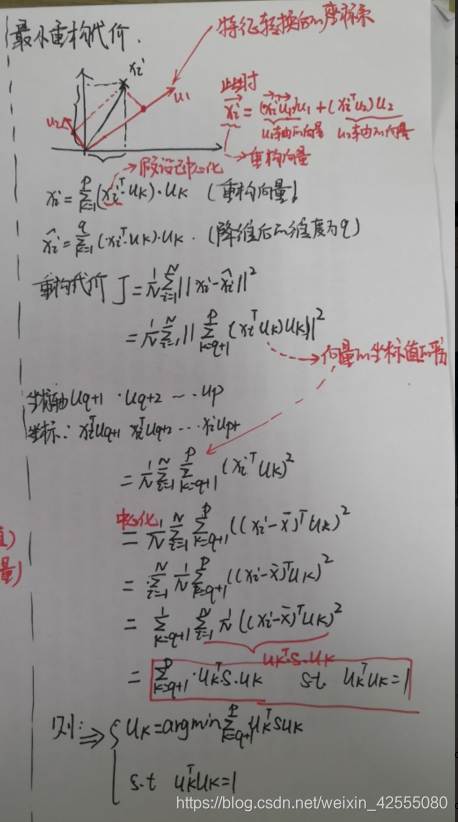 最小重构代价.
特征转换后的坐标系
xi
u1
u2
此时
xi = (xiᵀu1)u1 + (xiᵀu2)u2
u1轴的向量 u2轴的向量
重构向量
假设已中心化
xi = Σ_{k=1}^{p}(xiᵀ·uk)·uk (重构向量)
x̂i = Σ_{k=1}^{q}(xiᵀ·uk)·uk. (降维后的维度为q)
重构代价 J = 1/N Σ_{i=1}^{N} ||xi - x̂i||²
= 1/N Σ_{i=1}^{N} || Σ_{k=q+1}^{p} (xiᵀuk)uk||²
向量的坐标值的平
坐标轴 uq+1 ·uq+2 ... up
坐标: xiᵀuq+1 xiᵀuq+2 ... xiᵀup
= 1/N Σ_{i=1}^{N} Σ_{k=q+1}^{p} (xiᵀuk)²
中心化
= 1/N Σ_{i=1}^{N} Σ_{k=q+1}^{p} ((xi - x̄)ᵀuk)²
= Σ_{i=1}^{N} 1/N Σ_{k=q+1}^{p} ((xi - x̄)ᵀuk)²
= Σ_{k=q+1}^{p} Σ_{i=1}^{N} 1/N ((xi - x̄)ᵀuk)²
ukᵀ·s·uk
= Σ_{k=q+1}^{p} ·ukᵀs·uk s.t ukᵀuk=1
则: ⇒ { uk = argmin Σ_{k=q+1}^{p} ukᵀsuk
s.t ukᵀuk=1
量)
https://blog.csdn.net/weixin_42555080